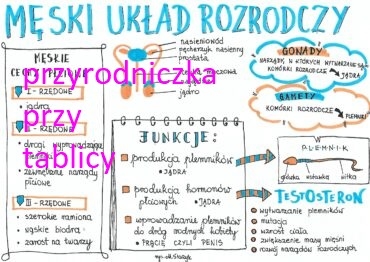 MĘSKI UKŁAD ROZRODCZY
MĘSKIE
CECHY
I - RZĘDOWE
jądra
II - RZĘDOWE
drogi wyprowadzające
zewnętrzne narządy
płciowe
III - RZĘDOWE
szerokie ramiona
wąskie biodra
zarost na twarzy
przyrodniczka
przy
tablicy
nasieniowód
pęcherzyk nasienny
prostata
jądro
FUNKCJE:
produkcja plemników
JĄDRA
produkcja hormonów
płciowych
JĄDRA
wprowadzanie plemników
do dróg rodnych kobiety
PRĄCIE CZYLI PENIS
GONADY
NARZĄDY, W KTÓRYCH WYTWARZANE SĄ
KOMÓRKI ROZRODCZE → JĄDRA
GAMETY
KOMÓRKI ROZRODCZE → PLEMNIKI
PLEMNIK
główka
wstawka
witka
TESTOSTERON
wytwarzanie plemników
mutacja
wzrost ciała
zwiększenie masy mięśni
rozwój narządów rozrodczych